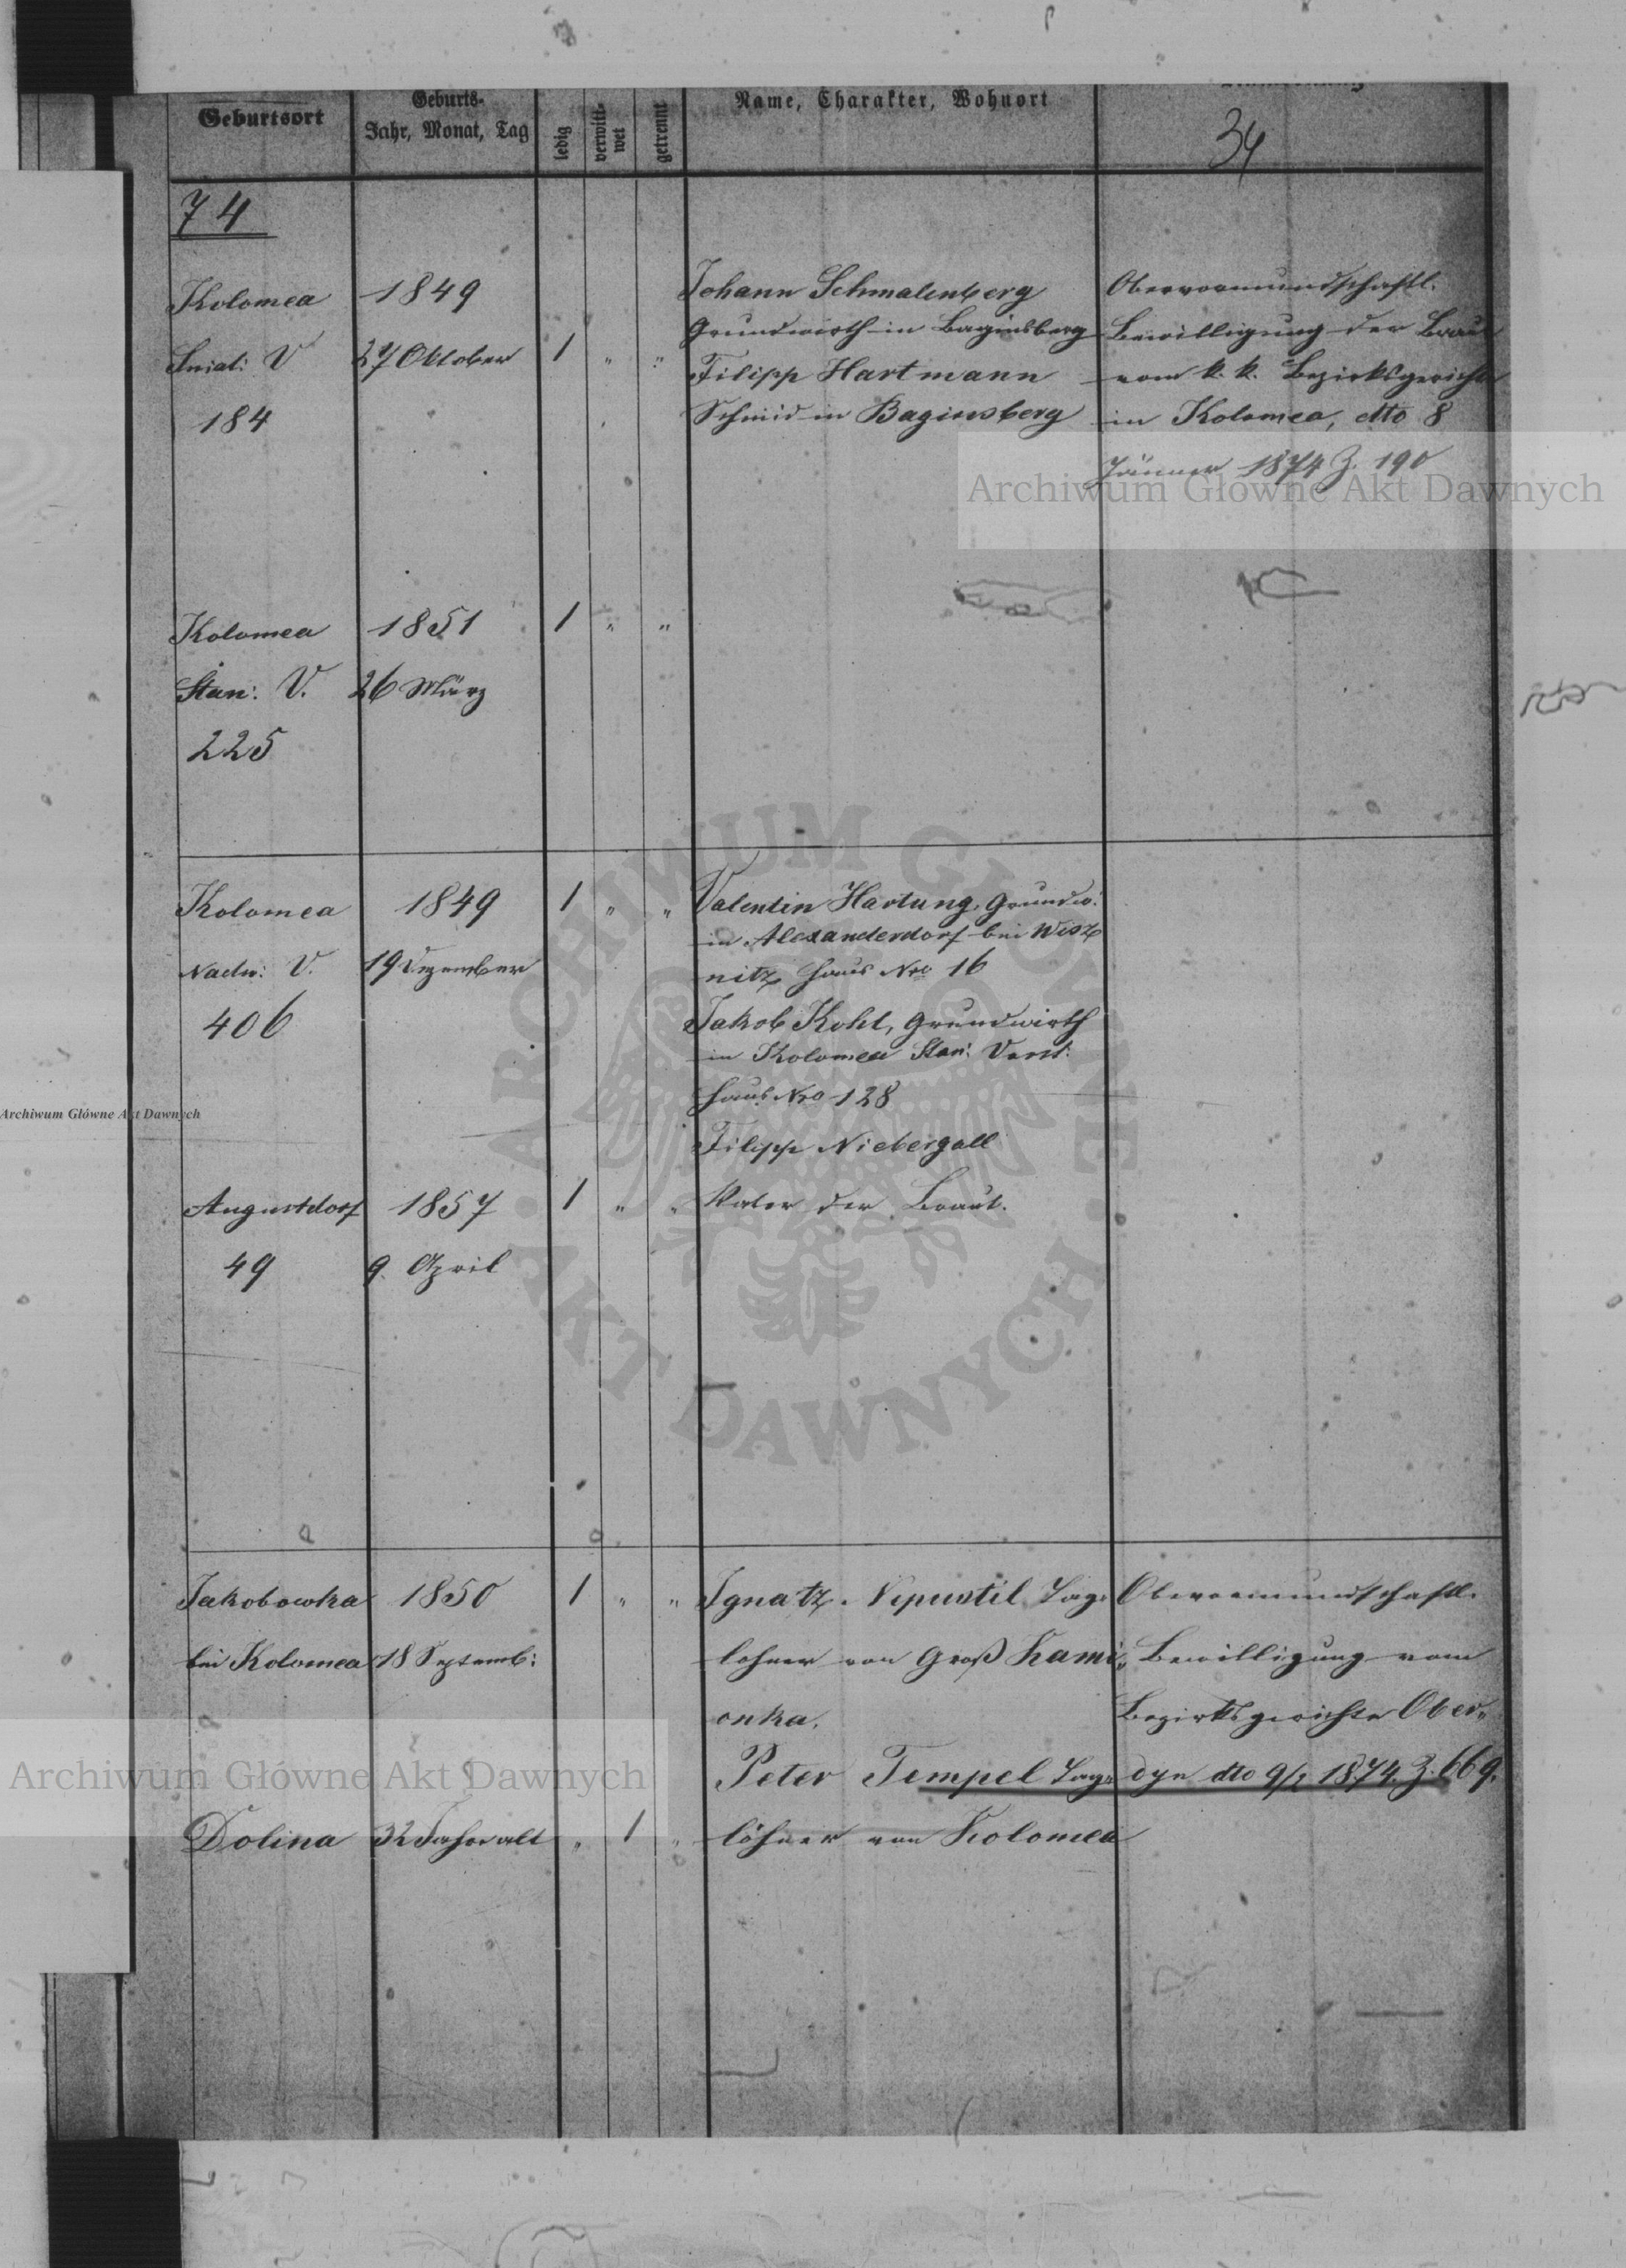 Geburtsort
Geburts-
Jahr, Monat, Tag
ledig
verwitt-
wet
getrennt
Name, Charakter, Wohnort
34
74
Kolomea 1849 Johann Schmalenberg Obervormundschaftl.
Grundwirth in Baginsberg Bewilligung der Braut
Sniat: V 27 Oktober 1 " " Filipp Hartmann vom k. k. Bezirksgerichte
184 Schmid in Baginsberg in Kolomea, dto 8
Jänner 1874 Z. 190
Archiwum Główne Akt Dawnych
Kolomea 1851 1 " "
Stan: V. 26 März
225
Kolomea 1849 1 " " Valentin Hartung, Grundw:
in Alexanderdorf bei Wisz
Nadw: V. 19 Dezember nitz Haus Nro 16
406 Jakob Kohl, Grundwirth
in Kolomea Stan: Vorst:
Haus Nro 128
Archiwum Główne Akt Dawnych
Filipp Niebergall
Augustdorf 1857 1 " " Vater der Braut.
49 9. April
ARCHIWUM GŁÓWNE
AKT DAWNYCH
Jakobowka 1850 1 " " Ignatz Nepustil Tag= Obervormundschaftl.
bei Kolomea 18 Septemb: lohner von Groß Kami„ Bewilligung vom
onka. Bezirksgerichte Ober„
Peter Tempel Tag= dyn dto 9/2 1874. Z. 669.
Archiwum Główne Akt Dawnych
Dolina 32 Jahre alt " 1 " löhner von Kolomea